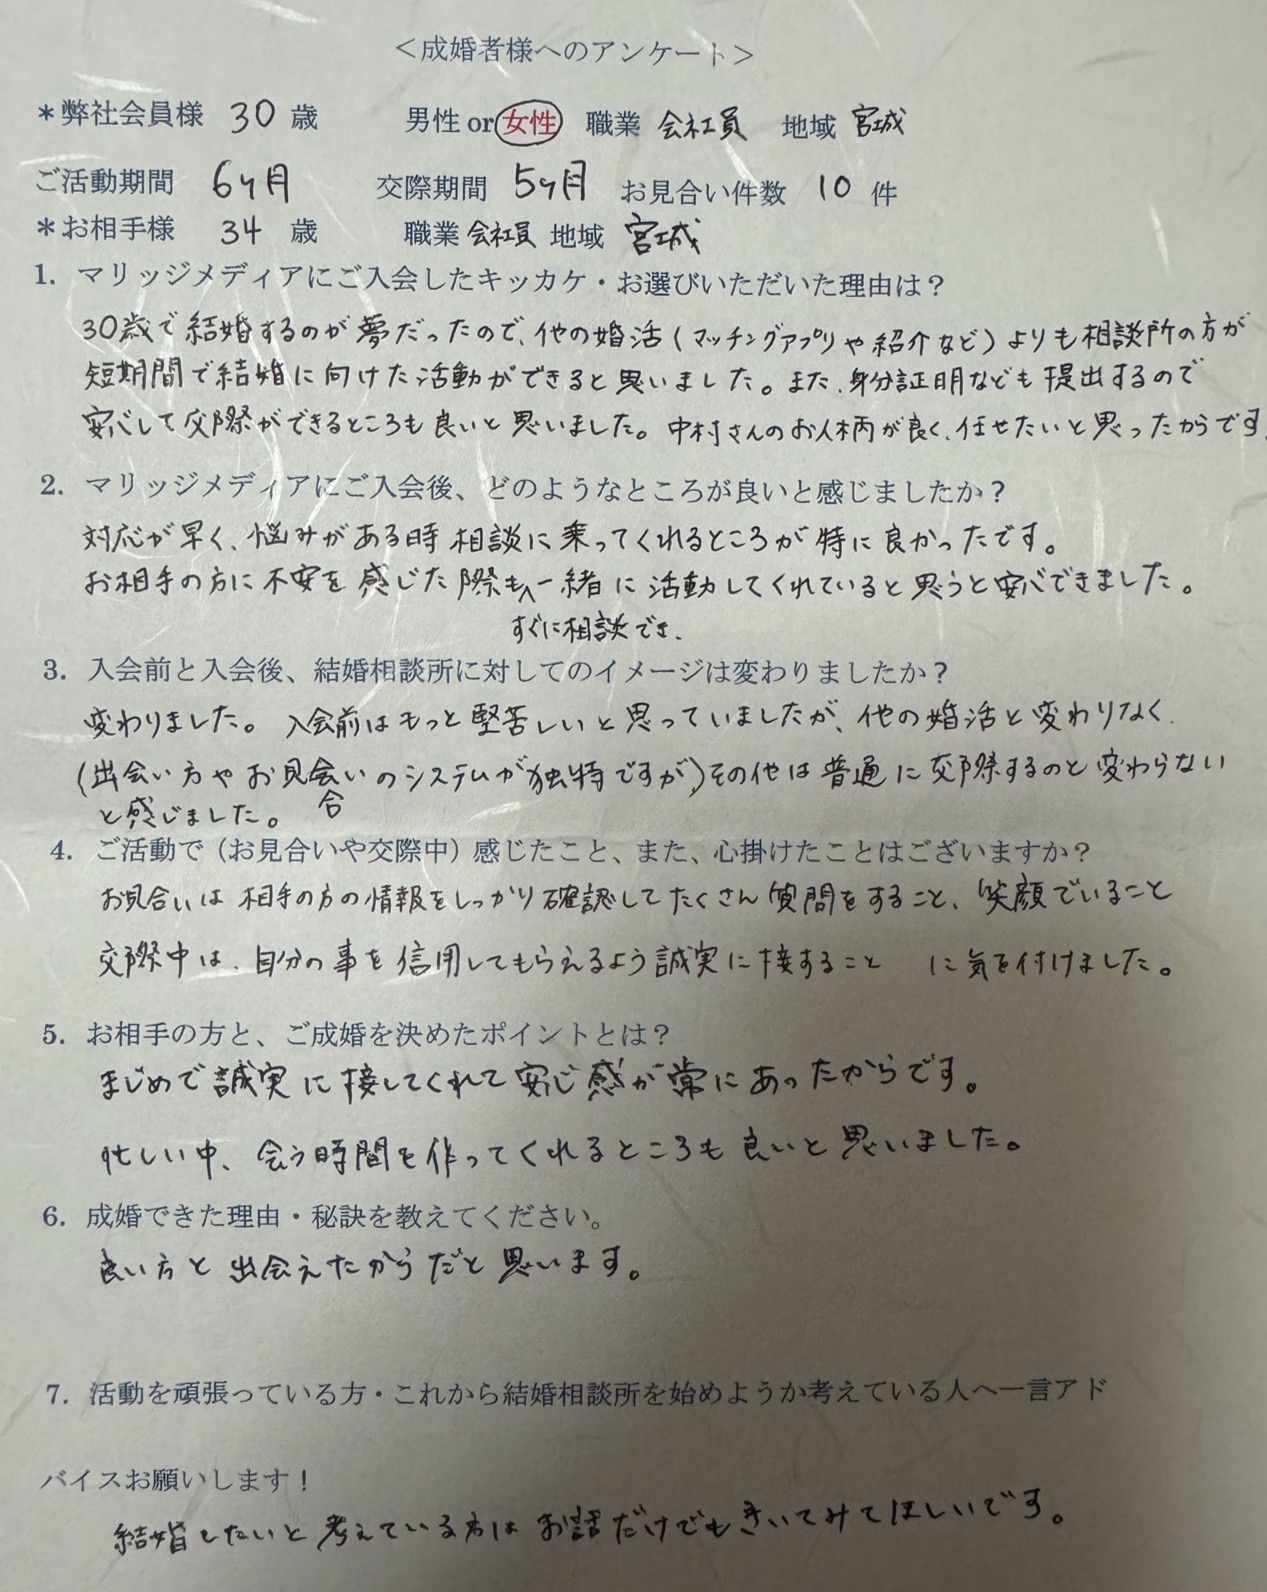 ＜成婚者様へのアンケート＞
＊弊社会員様 30 歳 男性 or 女性 職業 会社員 地域 宮城
ご活動期間 6ヶ月 交際期間 5ヶ月 お見合い件数 10 件
＊お相手様 34 歳 職業 会社員 地域 宮城
1. マリッジメディアにご入会したキッカケ・お選びいただいた理由は？
30歳で結婚するのが夢だったので、他の婚活（マッチングアプリや紹介など）よりも相談所の方が
短期間で結婚に向けた活動ができると思いました。また、身分証明なども提出するので
安心して交際ができるところも良いと思いました。中村さんのお人柄が良く、任せたいと思ったからです。
2. マリッジメディアにご入会後、どのようなところが良いと感じましたか？
対応が早く、悩みがある時相談に乗ってくれるところが特に良かったです。
お相手の方に不安を感じた際も、一緒に活動してくれていると思うと安心できました。
すぐに相談でき、
3. 入会前と入会後、結婚相談所に対してのイメージは変わりましたか？
変わりました。入会前はもっと堅苦しいと思っていましたが、他の婚活と変わりなく、
（出会い方やお見会いのシステムが独特ですが、）その他は普通に交際するのと変わらない
合
と感じました。
4. ご活動で（お見合いや交際中）感じたこと、また、心掛けたことはございますか？
お見合いは相手の方の情報をしっかり確認してたくさん質問をすること、笑顔でいること
交際中は、自分の事を信用してもらえるよう誠実に接すること に気を付けました。
5. お相手の方と、ご成婚を決めたポイントとは？
まじめで誠実に接してくれて安心感が常にあったからです。
忙しい中、会う時間を作ってくれるところも良いと思いました。
6. 成婚できた理由・秘訣を教えてください。
良い方と出会えたからだと思います。
7. 活動を頑張っている方・これから結婚相談所を始めようか考えている人へ一言アド
バイスお願いします！
結婚したいと考えている方はお話だけでもきいてみてほしいです。